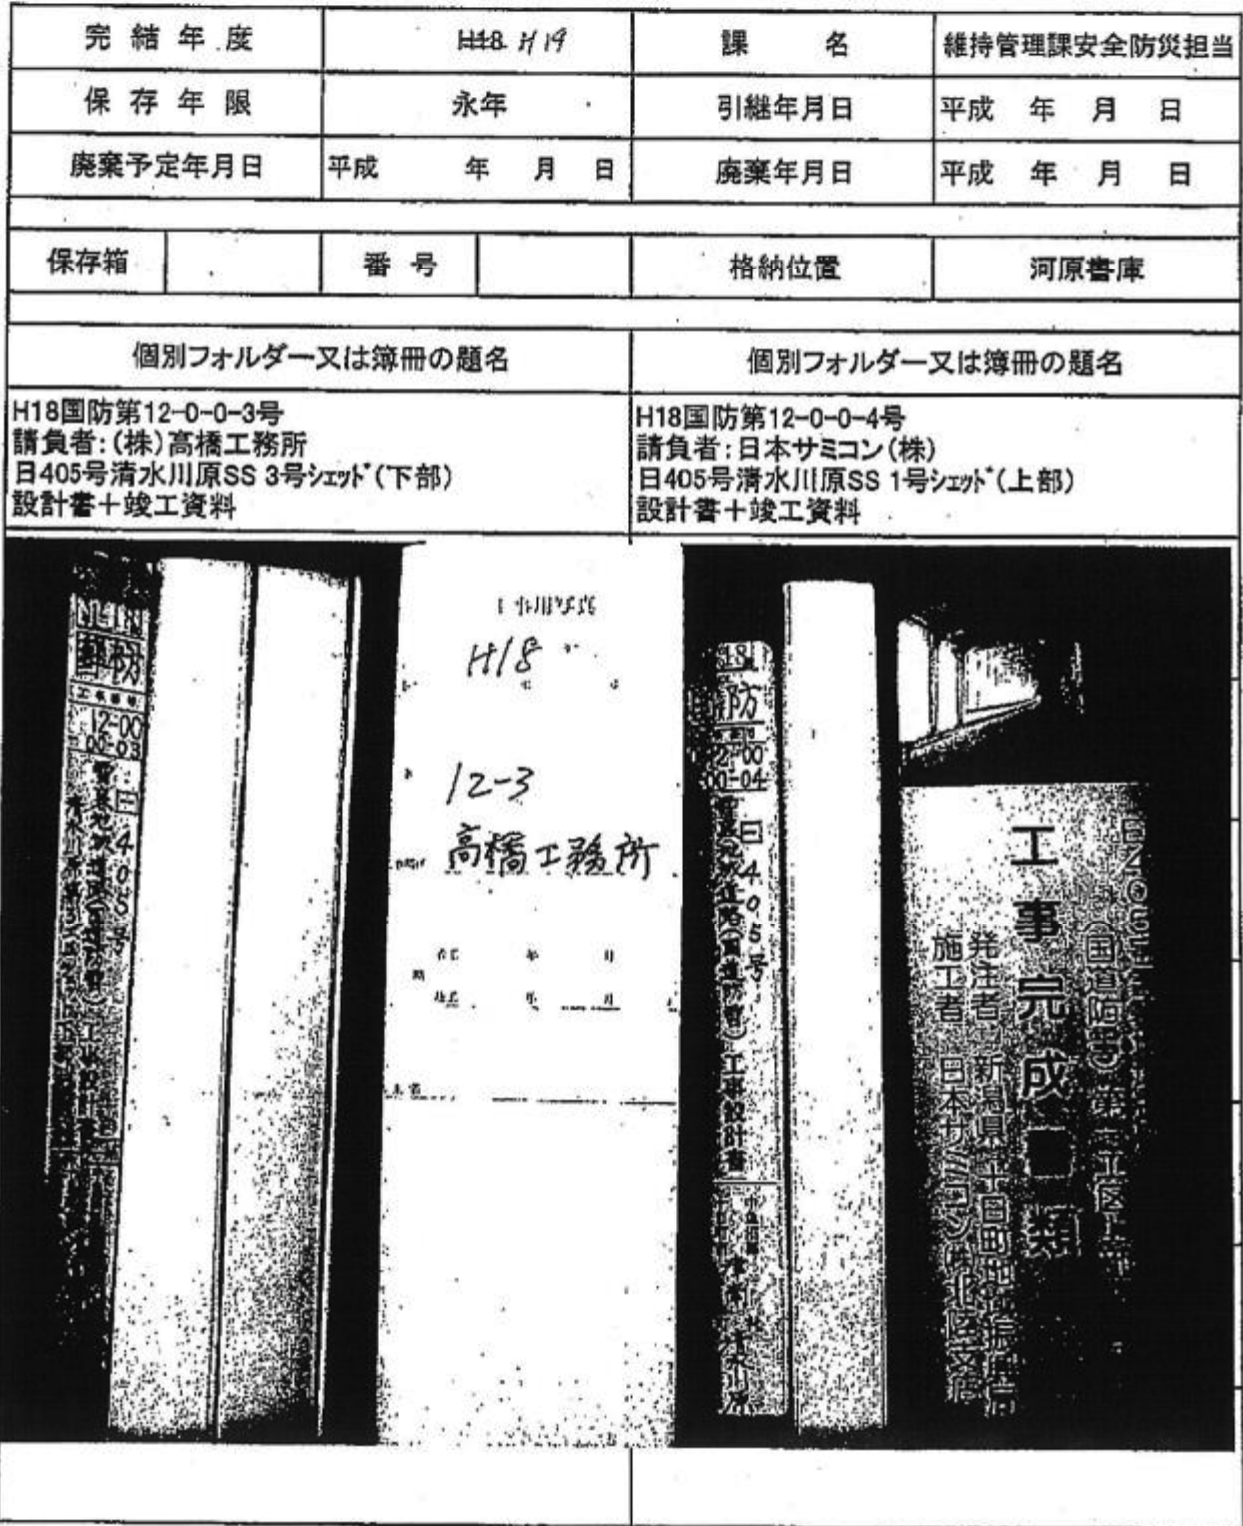 完結年度 H18 H19 課名 維持管理課安全防災担当
保存年限 永年 引継年月日 平成 年 月 日
廃棄予定年月日 平成 年 月 日 廃棄年月日 平成 年 月 日
保存箱 番号 格納位置 河原書庫
個別フォルダー又は簿冊の題名
H18国防第12-0-0-3号
請負者:(株)高橋工務所
日405号清水川原SS 3号シェッド(下部)
設計書+竣工資料
個別フォルダー又は簿冊の題名
H18国防第12-0-0-4号
請負者:日本サミコン(株)
日405号清水川原SS 1号シェッド(上部)
設計書+竣工資料
防
12-00
00-03
日405号
工事用写真
H18
12-3
高橋工務所
年 月
年 月
18
防
00-04
日405号
(国道防雪)工事設計書
日405
(国道防雪)第
工事完成
類
発注者 新潟県十日町地域振興局
施工者 日本サミコン(株)北陸支店